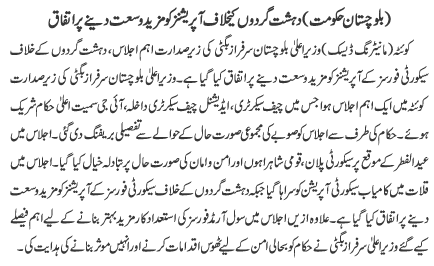 (بلوچستان حکومت) دہشت گردوں کیخلاف آپریشنز کو مزید وسعت دینے پر اتفاق
کوئٹہ (مانیٹرنگ ڈیسک) وزیراعلیٰ بلوچستان سرفراز بگٹی کی زیر صدارت اہم اجلاس، دہشت گردوں کے خلاف
سکورٹی فورسز کے آپریشنز کو مزید وسعت دینے پر اتفاق کیا گیا ہے۔ وزیراعلیٰ بلوچستان سرفراز بگٹی کی زیر صدارت
کوئٹہ میں ایک اہم اجلاس ہوا جس میں چیف سیکرٹری، ایڈیشنل چیف سیکرٹری داخلہ، آئی جی سمیت اعلیٰ حکام شریک
ہوئے۔ حکام کی طرف سے اجلاس کو صوبے کی مجموعی صورت حال کے حوالے سے تفصیلی بریفنگ دی گئی۔ اجلاس میں
عید الفطر کے موقع پر سیکورٹی پلان، قومی شاہراہوں اور امن و امان کی صورت حال پر تبادلہ خیال کیا گیا۔ اجلاس میں
قلات میں کامیاب سیکورٹی آپریشن کو سراہا گیا جبکہ دہشت گردوں کے خلاف سیکورٹی فورسز کے آپریشنز کو مزید وسعت
دینے پر اتفاق کیا گیا ہے۔ علاوہ ازیں اجلاس میں سول آرمڈ فورسز کی استعداد کار مزید بہتر بنانے کے لیے اہم فیصلے
کیے گئے وزیراعلیٰ سرفراز بگٹی نے حکام کو بحالی امن کے لیے ٹھوس اقدامات کرنے اور انہیں موثر بنانے کی ہدایت کی۔